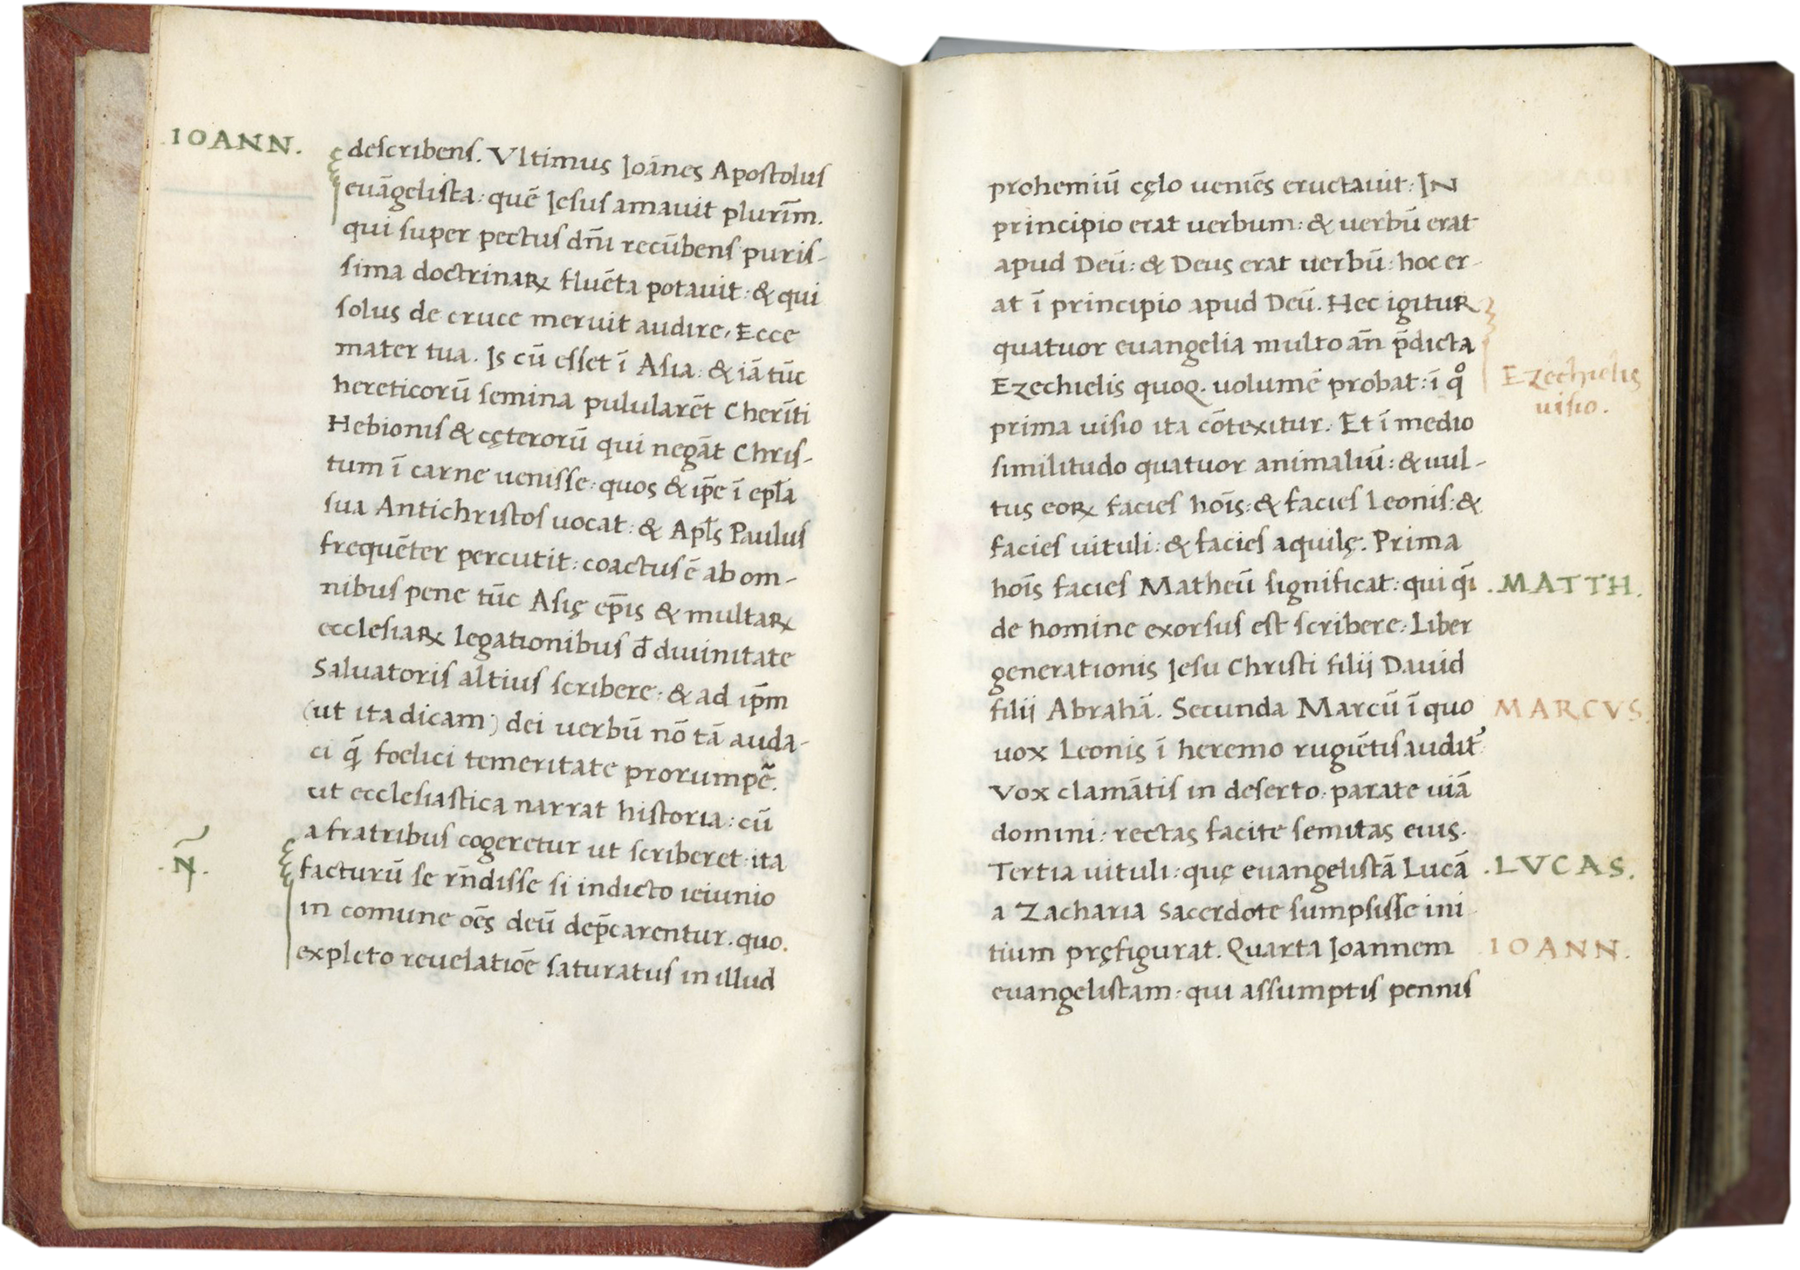 IOANN.
describens. Vltimus Joānes Apostolus
euāgelista: quē Jesus amauit plurīm.
qui super pectus dn̄i recūbens puris-
sima doctrinaꝝ fluēta potauit: & qui
solus de cruce meruit audire, Ecce
mater tua. Js cū esset ī Asia: & iā tūc
hereticorū semina pulularēt Cherīti
Hebionis & cęterorū qui negāt Chris-
tum ī carne uenisse: quos & ip̄e ī epl̄a
sua Antichristos uocat: & Apl̄s Paulus
frequēter percutit: coactus ē ab om-
nibus pene tūc Asię ep̄is & multaꝝ
ecclesiaꝝ legationibus d̄ diuinitate
Saluatoris altius scribere: & ad ip̄m
(ut ita dicam) dei uerbū nō tā auda-
ci q̄ foelici temeritate prorumpē.
ut ecclesiastica narrat historia: cū
a fratribus cogeretur ut scriberet: ita
.Ñ.
facturū se rn̄disse si indicto ieiunio
in comune oēs deū dep̄carentur. quo.
expleto reuelatiōe saturatus in illud
prohemiū cęlo ueniēs eructauit: JN
principio erat uerbum: & uerbū erat
apud Deū: & Deus erat uerbū: hoc er-
at ī principio apud Deū. Hec igitur
quatuor euangelia multo an̄ p̄dicta
Ezechielis quoq. uolumē probat: ī qͦ
Ezechielis
uisio.
prima uisio ita cōtexitur. Et ī medio
similitudo quatuor animaliū: & uul-
tus eoꝝ facies hoīs: & facies Leonis: &
facies uituli: & facies aquilę. Prima
hoīs facies Matheū significat: qui q̄i
.MATTH.
de homine exorsus est scribere: Liber
generationis Jesu Christi filij Dauid
filij Abrahā. Secunda Marcū ī quo
MARCVS
uox Leonis ī heremo rugiētis audit᷒
Vox clamātis in deserto: parate uiā
domini: rectas facite semitas eius.
Tertia uituli: quę euangelistā Lucā
.LVCAS.
a Zacharia sacerdote sumpsisse ini
tium pręfigurat. Quarta Joannem
IOANN.
euangelistam: qui assumptis pennis